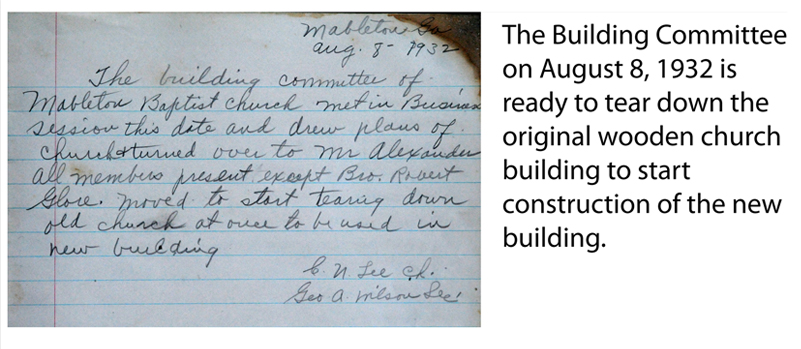 Mableton Ga
Aug. 8 - 1932
The building committee of
Mableton Baptist church met in Business
session this date and drew plans of
church & turned over to Mr Alexander
all members present except Bro. Robert
Glore. moved to start tearing down
old church at once to be used in
new building
C. N Lee Ch.
Geo A. Wilson Sec.
The Building Committee
on August 8, 1932 is
ready to tear down the
original wooden church
building to start
construction of the new
building.